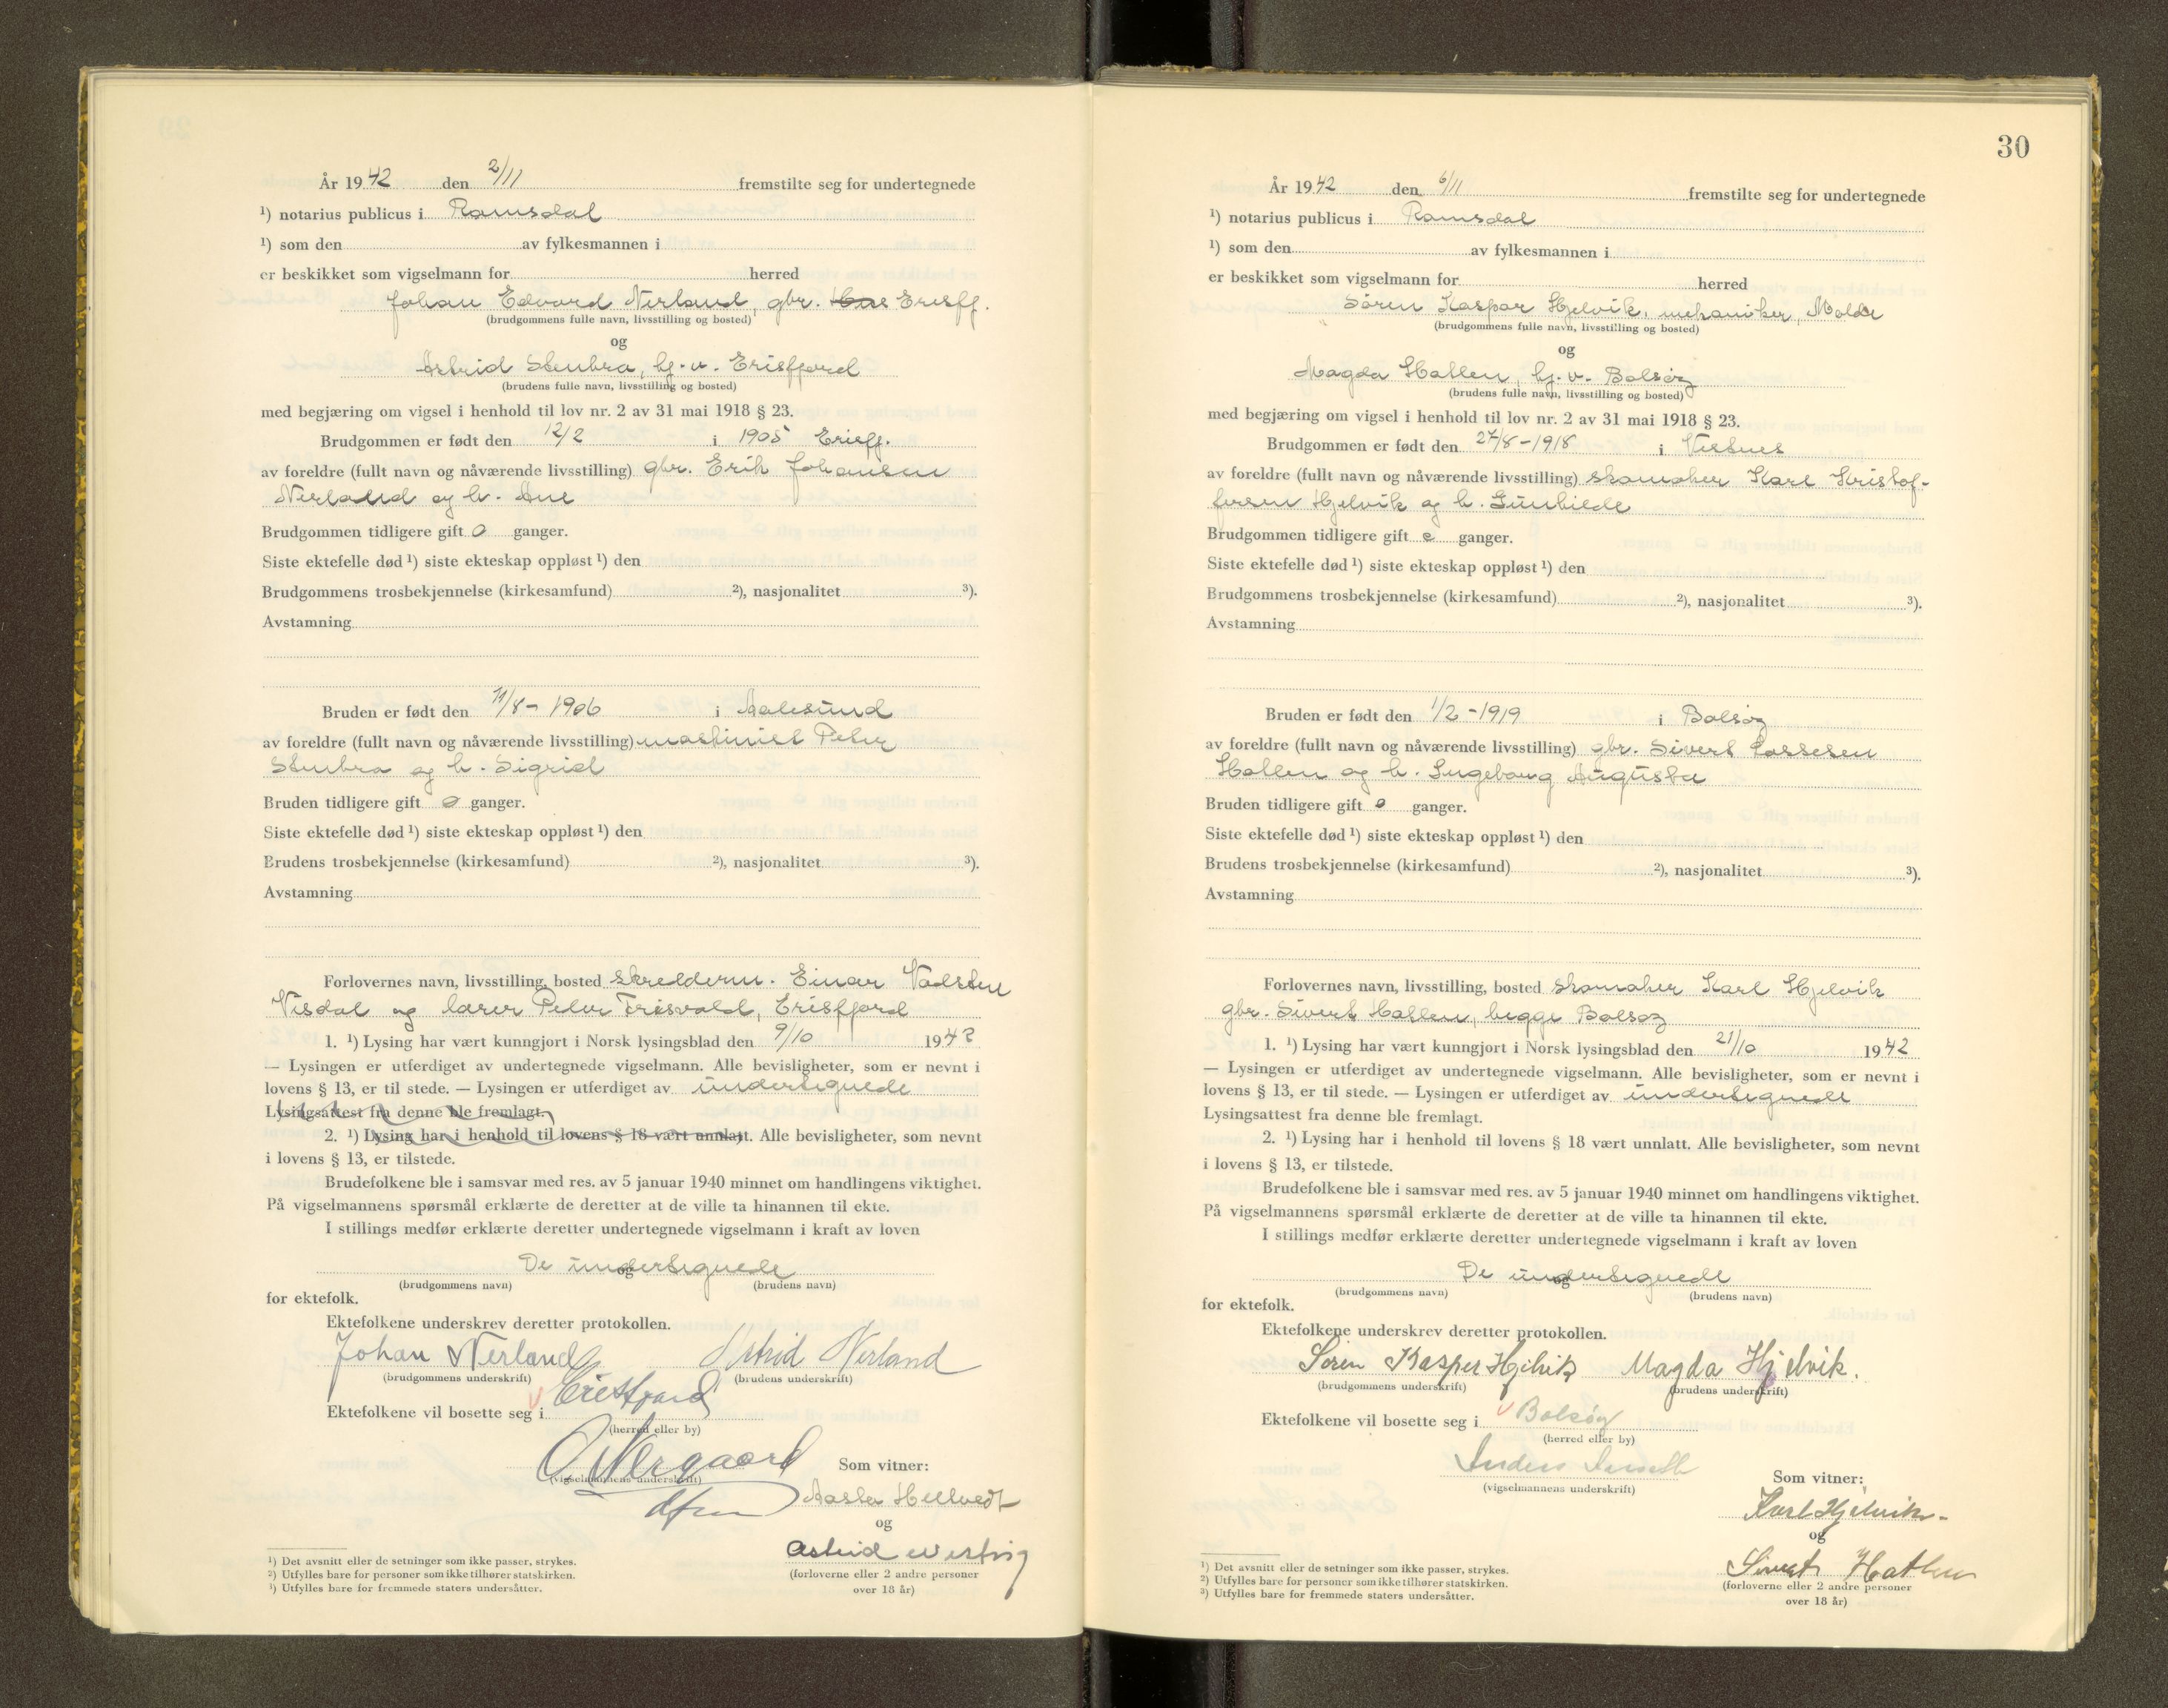 År 1942 den 2/11 fremstilte seg for undertegnede
¹) notarius publicus i Romsdal
¹) som den av fylkesmannen i
er beskikket som vigselmann for herred
Johan Edvard Nerland, gbr. Eresfj.
(brudgommens fulle navn, livsstilling og bosted)
og
Astrid Stenbra, hj.v. Erisfjord
(brudens fulle navn, livsstilling og bosted)
med begjæring om vigsel i henhold til lov nr. 2 av 31 mai 1918 § 23.
Brudgommen er født den 12/2 i 1905 Eresfj.
av foreldre (fullt navn og nåværende livsstilling) gbr. Erik Johansen
Nerland og h. Ane
Brudgommen tidligere gift 0 ganger.
Siste ektefelle død ¹) siste ekteskap oppløst ¹) den
Brudgommens trosbekjennelse (kirkesamfund) ²), nasjonalitet ³).
Avstamning
Bruden er født den /8 - 1906 i Aalesund
av foreldre (fullt navn og nåværende livsstilling) maskinist Peter
Stenbra og h. Sigrid
Bruden tidligere gift 0 ganger.
Siste ektefelle død ¹) siste ekteskap oppløst ¹) den
Brudens trosbekjennelse (kirkesamfund) ²), nasjonalitet ³).
Avstamning
Forlovernes navn, livsstilling, bosted skrelderm. Einar
Visdal og lærer Peder Frisvold, Erisfjord
1. ¹) Lysing har vært kunngjort i Norsk lysingsblad den 9/10 1942
— Lysingen er utferdiget av undertegnede vigselmann. Alle bevisligheter, som er nevnt i
lovens § 13, er til stede. — Lysingen er utferdiget av undertegnede
Lysingsattest fra denne ble fremlagt.
2. ¹) Lysing har i henhold til lovens § 18 vært unnlatt. Alle bevisligheter, som nevnt
i lovens § 13, er tilstede.
Brudefolkene ble i samsvar med res. av 5 januar 1940 minnet om handlingens viktighet.
På vigselmannens spørsmål erklærte de deretter at de ville ta hinannen til ekte.
I stillings medfør erklærte deretter undertegnede vigselmann i kraft av loven
De undertegnede
og
(brudgommens navn) (brudens navn)
for ektefolk.
Ektefolkene underskrev deretter protokollen.
Johan Nerland Astrid Nerland
(brudgommens underskrift) (brudens underskrift)
Ektefolkene vil bosette seg i Eresfjord
(herred eller by)
Som vitner:
(vigselmannens underskrift)
Aasta Helle
og
Astrid
(forloverne eller 2 andre personer
over 18 år)
¹) Det avsnitt eller de setninger som ikke passer, strykes.
²) Utfylles bare for personer som ikke tilhører statskirken.
³) Utfylles bare for fremmede staters undersåtter.
30
År 1942 den 6/11 fremstilte seg for undertegnede
¹) notarius publicus i Romsdal
¹) som den av fylkesmannen i
er beskikket som vigselmann for herred
Søren Kaspar Hjelvik, mekaniker, Molde
(brudgommens fulle navn, livsstilling og bosted)
og
Magda Hatlen, hj.v. Bolsøy
(brudens fulle navn, livsstilling og bosted)
med begjæring om vigsel i henhold til lov nr. 2 av 31 mai 1918 § 23.
Brudgommen er født den 27/8 - 1918 i Vestnes
av foreldre (fullt navn og nåværende livsstilling) skomaker Karl Kristof-
fersen Hjelvik og h. Gunhilde
Brudgommen tidligere gift 0 ganger.
Siste ektefelle død ¹) siste ekteskap oppløst ¹) den
Brudgommens trosbekjennelse (kirkesamfund) ²), nasjonalitet ³).
Avstamning
Bruden er født den 1/2 - 1919 i Bolsøy
av foreldre (fullt navn og nåværende livsstilling) gbr. Sivert Lassesen
Hatlen og h. Ingeborg Augusta
Bruden tidligere gift 0 ganger.
Siste ektefelle død ¹) siste ekteskap oppløst ¹) den
Brudens trosbekjennelse (kirkesamfund) ²), nasjonalitet ³).
Avstamning
Forlovernes navn, livsstilling, bosted skomaker Karl Hjelvik
gbr. Sivert Hatlen, begge Bolsøy
1. ¹) Lysing har vært kunngjort i Norsk lysingsblad den 21/10 1942
— Lysingen er utferdiget av undertegnede vigselmann. Alle bevisligheter, som er nevnt i
lovens § 13, er til stede. — Lysingen er utferdiget av undertegnede
Lysingsattest fra denne ble fremlagt.
2. ¹) Lysing har i henhold til lovens § 18 vært unnlatt. Alle bevisligheter, som nevnt
i lovens § 13, er tilstede.
Brudefolkene ble i samsvar med res. av 5 januar 1940 minnet om handlingens viktighet.
På vigselmannens spørsmål erklærte de deretter at de ville ta hinannen til ekte.
I stillings medfør erklærte deretter undertegnede vigselmann i kraft av loven
De undertegnede
og
(brudgommens navn) (brudens navn)
for ektefolk.
Ektefolkene underskrev deretter protokollen.
Søren Kasper Hjelvik Magda Hjelvik.
(brudgommens underskrift) (brudens underskrift)
Ektefolkene vil bosette seg i Bolsøy
(herred eller by)
Anders
Som vitner:
(vigselmannens underskrift)
Karl Hjelvik
og
Sivert Hatlen
(forloverne eller 2 andre personer
over 18 år)
¹) Det avsnitt eller de setninger som ikke passer, strykes.
²) Utfylles bare for personer som ikke tilhører statskirken.
³) Utfylles bare for fremmede staters undersåtter.